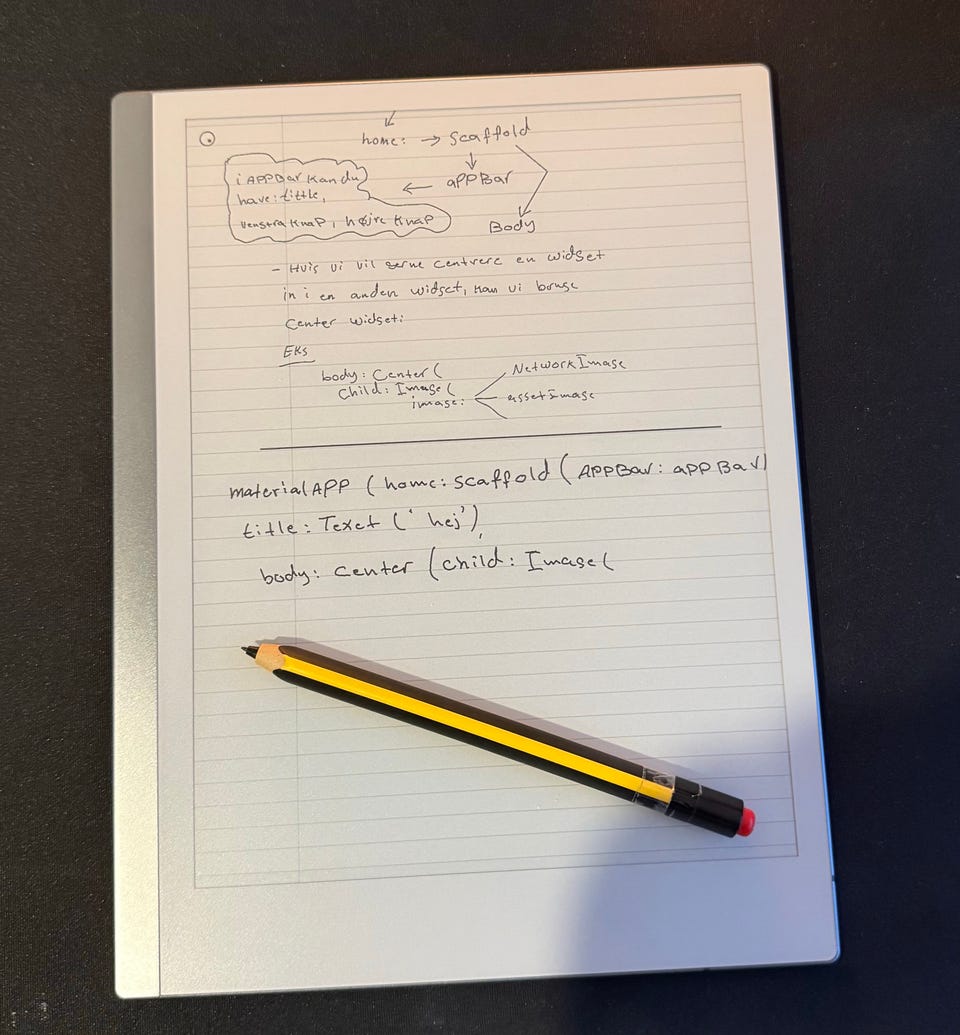 home: → scaffold
i APPBar kan du
have: tittle,
venstra knap, højre knap
← appBar
Body
- Hvis vi vil gerne centrere en widget
in i en anden widget, kan vi bruge
Center widget:
EKS
body: Center(
child: Image(
image:
NetworkImage
assetImage
materialAPP (home: scaffold (APPBar: appBar(
title: Texet (' hej'),
body: center (child: Image(